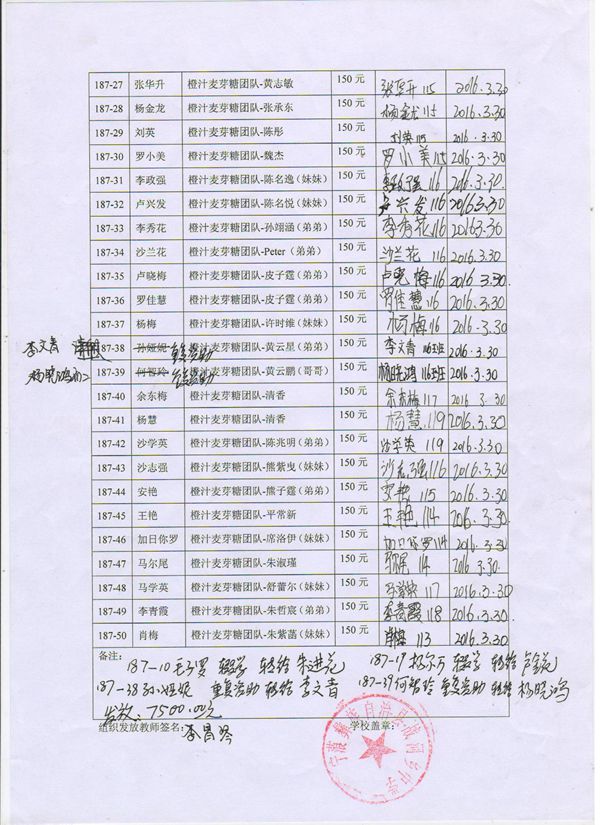 187-27 张华升 橙汁麦芽糖团队-黄志敏 150 元 张华升 115 2016.3.30
187-28 杨金龙 橙汁麦芽糖团队-张承东 150 元 杨金龙 115 2016.3.30
187-29 刘英 橙汁麦芽糖团队-陈彤 150 元 刘英 115 2016.3.30
187-30 罗小美 橙汁麦芽糖团队-魏杰 150 元 罗小美 115 2016.3.30
187-31 李政强 橙汁麦芽糖团队-陈名逸（妹妹） 150 元 李政强 116 2016.3.30
187-32 卢兴发 橙汁麦芽糖团队-陈名悦（妹妹） 150 元 卢兴发 116 2016.3.30
187-33 李秀花 橙汁麦芽糖团队-孙翊涵（弟弟） 150 元 李秀花 116 2016.3.30
187-34 沙兰花 橙汁麦芽糖团队-Peter（弟弟） 150 元 沙兰花 116 2016.3.30
187-35 卢晓梅 橙汁麦芽糖团队-皮子霆（弟弟） 150 元 卢晓梅 116 2016.3.30
187-36 罗佳慧 橙汁麦芽糖团队-皮子霆（弟弟） 150 元 罗佳慧 116 2016.3.30
187-37 杨梅 橙汁麦芽糖团队-许时维（妹妹） 150 元 杨梅 116 2016.3.30
李文青 187-38 孙娅妮 重复资助 橙汁麦芽糖团队-黄云星（弟弟） 150 元 李文青 116班 2016.3.30
杨晓鸿 187-39 何智玲 重复资助 橙汁麦芽糖团队-黄云鹏（哥哥） 150 元 杨晓鸿 116班 2016.3.30
187-40 余东梅 橙汁麦芽糖团队-清香 150 元 余东梅 117 2016.3.30
187-41 杨慧 橙汁麦芽糖团队-清香 150 元 杨慧 119 2016.3.30
187-42 沙学英 橙汁麦芽糖团队-陈兆明（弟弟） 150 元 沙学英 119 2016.3.30
187-43 沙志强 橙汁麦芽糖团队-熊紫曳（妹妹） 150 元 沙志强 116 2016.3.30
187-44 安艳 橙汁麦芽糖团队-熊子霆（弟弟） 150 元 安艳 115 2016.3.30
187-45 王艳 橙汁麦芽糖团队-平常新 150 元 王艳 114 2016.3.30
187-46 加日你罗 橙汁麦芽糖团队-席洛伊（妹妹） 150 元 加日你罗 114 2016.3.30
187-47 马尔尾 橙汁麦芽糖团队-朱淑瑾 150 元 114 2016.3.30
187-48 马学英 橙汁麦芽糖团队-舒蕾尔（妹妹） 150 元 马学英 117 2016.3.30
187-49 李青霞 橙汁麦芽糖团队-朱哲宸（弟弟） 150 元 李青霞 118 2016.3.30
187-50 肖梅 橙汁麦芽糖团队-朱紫菡（妹妹） 150 元 肖梅 113 2016.3.30
备注：
187-10 毛子罗 辍学 转给 朱进花 187-17 辍学 转给
187-38 孙娅妮 重复资助 转给 李文青 187-39 何智玲 重复资助 转给 杨晓鸿
发放：7500.00元
组织发放教师签名：李昌琴 学校盖章：
宁蒗彝族自治县 中学